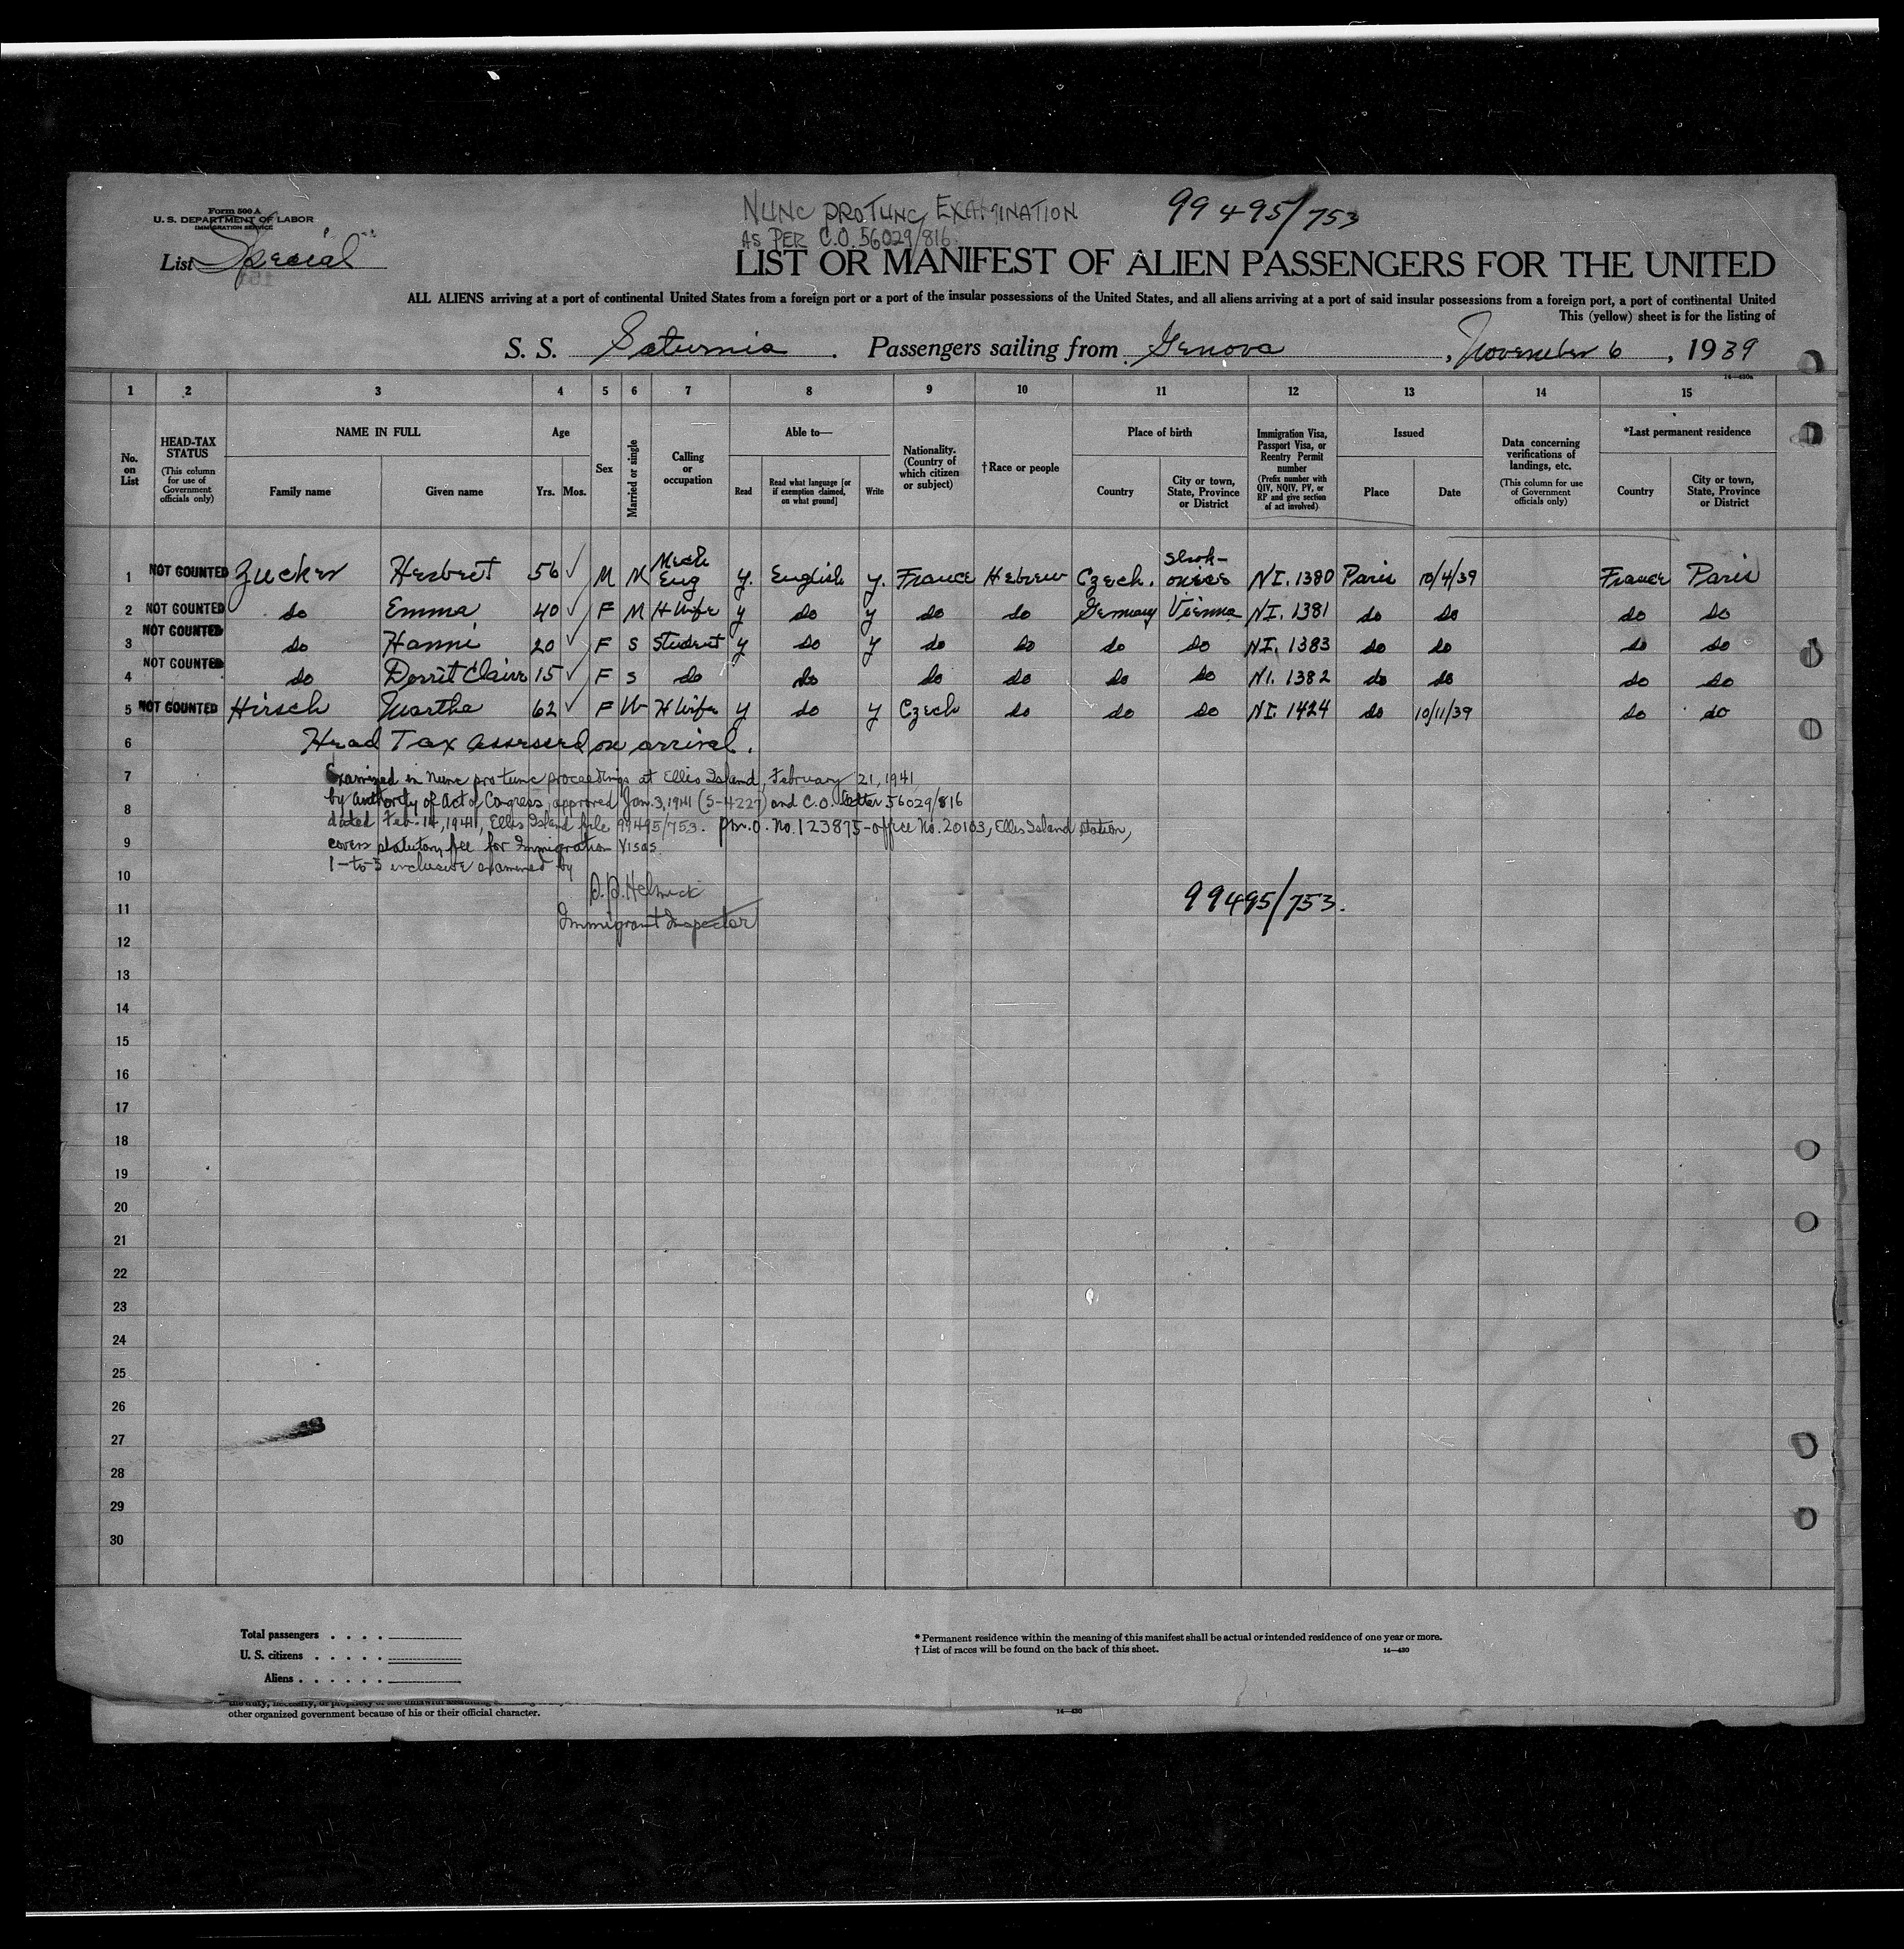 Form 500 A
U. S. DEPARTMENT OF LABOR
IMMIGRATION SERVICE
List Special
NUNC PRO TUNC EXAMINATION
AS PER C.O. 56029/816
99495/753
LIST OR MANIFEST OF ALIEN PASSENGERS FOR THE UNITED
ALL ALIENS arriving at a port of continental United States from a foreign port or a port of the insular possessions of the United States, and all aliens arriving at a port of said insular possessions from a foreign port, a port of continental United
This (yellow) sheet is for the listing of
S. S. Saturnia . Passengers sailing from Genova , November 6 , 1939
14—430a
1 2 3 4 5 6 7 8 9 10 11 12 13 14 15
No. on List
HEAD-TAX STATUS (This column for use of Government officials only)
NAME IN FULL
Family name Given name
Age
Yrs. Mos.
Sex
Married or single
Calling or occupation
Able to—
Read
Read what language [or if exemption claimed, on what ground]
Write
Nationality. (Country of which citizen or subject)
†Race or people
Place of birth
Country
City or town, State, Province or District
Immigration Visa, Passport Visa, or Reentry Permit number (Prefix number with QIV, NQIV, PV, or RP and give section of act involved)
Issued
Place Date
Data concerning verifications of landings, etc. (This column for use of Government officials only)
*Last permanent residence
Country
City or town, State, Province or District
1 NOT COUNTED Zucker Herbert 56 ✓ M M Mech Eng y. English y. France Hebrew Czech. NI. 1380 Paris 10/4/39 France Paris
2 NOT COUNTED do Emma 40 ✓ F M H Wife y do y do do Germany Vienna NI. 1381 do do do do
3 NOT COUNTED do Hanni 20 ✓ F S Student y do y do do do do NI. 1383 do do do do
4 NOT COUNTED do Dorrit Claire 15 ✓ F S do do do do do do NI. 1382 do do do do
5 NOT COUNTED Hirsch Martha 62 ✓ F W H Wife y do y Czech do do do NI. 1424 do 10/11/39 do do
6 Head Tax assessed on arrival.
7 Examined in nunc pro tunc proceedings at Ellis Island, February 21, 1941,
by authority of Act of Congress, approved Jan. 3, 1941 (S-4227) and C.O. letter 56029/816
8
dated Feb. 14, 1941, Ellis Island file 99495/753. Pm. O. No. 123875-office No. 20103, Ellis Island station,
9 covers statutory fee for Immigration Visas
1-to-5 inclusive examined by
10 Helmick
11 Immigrant Inspector 99495/753.
12
13
14
15
16
17
18
19
20
21
22
23
24
25
26
27
28
29
30
Total passengers . . . .
U. S. citizens . . . . .
Aliens . . . . . .
* Permanent residence within the meaning of this manifest shall be actual or intended residence of one year or more.
† List of races will be found on the back of this sheet.
14—430
other organized government because of his or their official character.
14—430